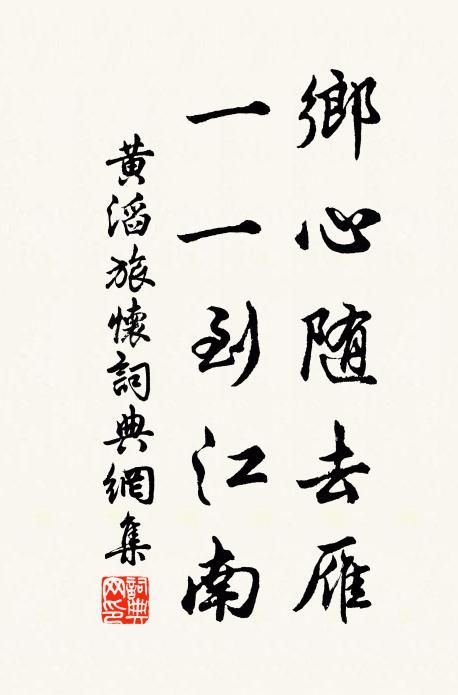 鄉心隨去雁
一一到江南
黃滔旅懷詞典網集
詞典網印